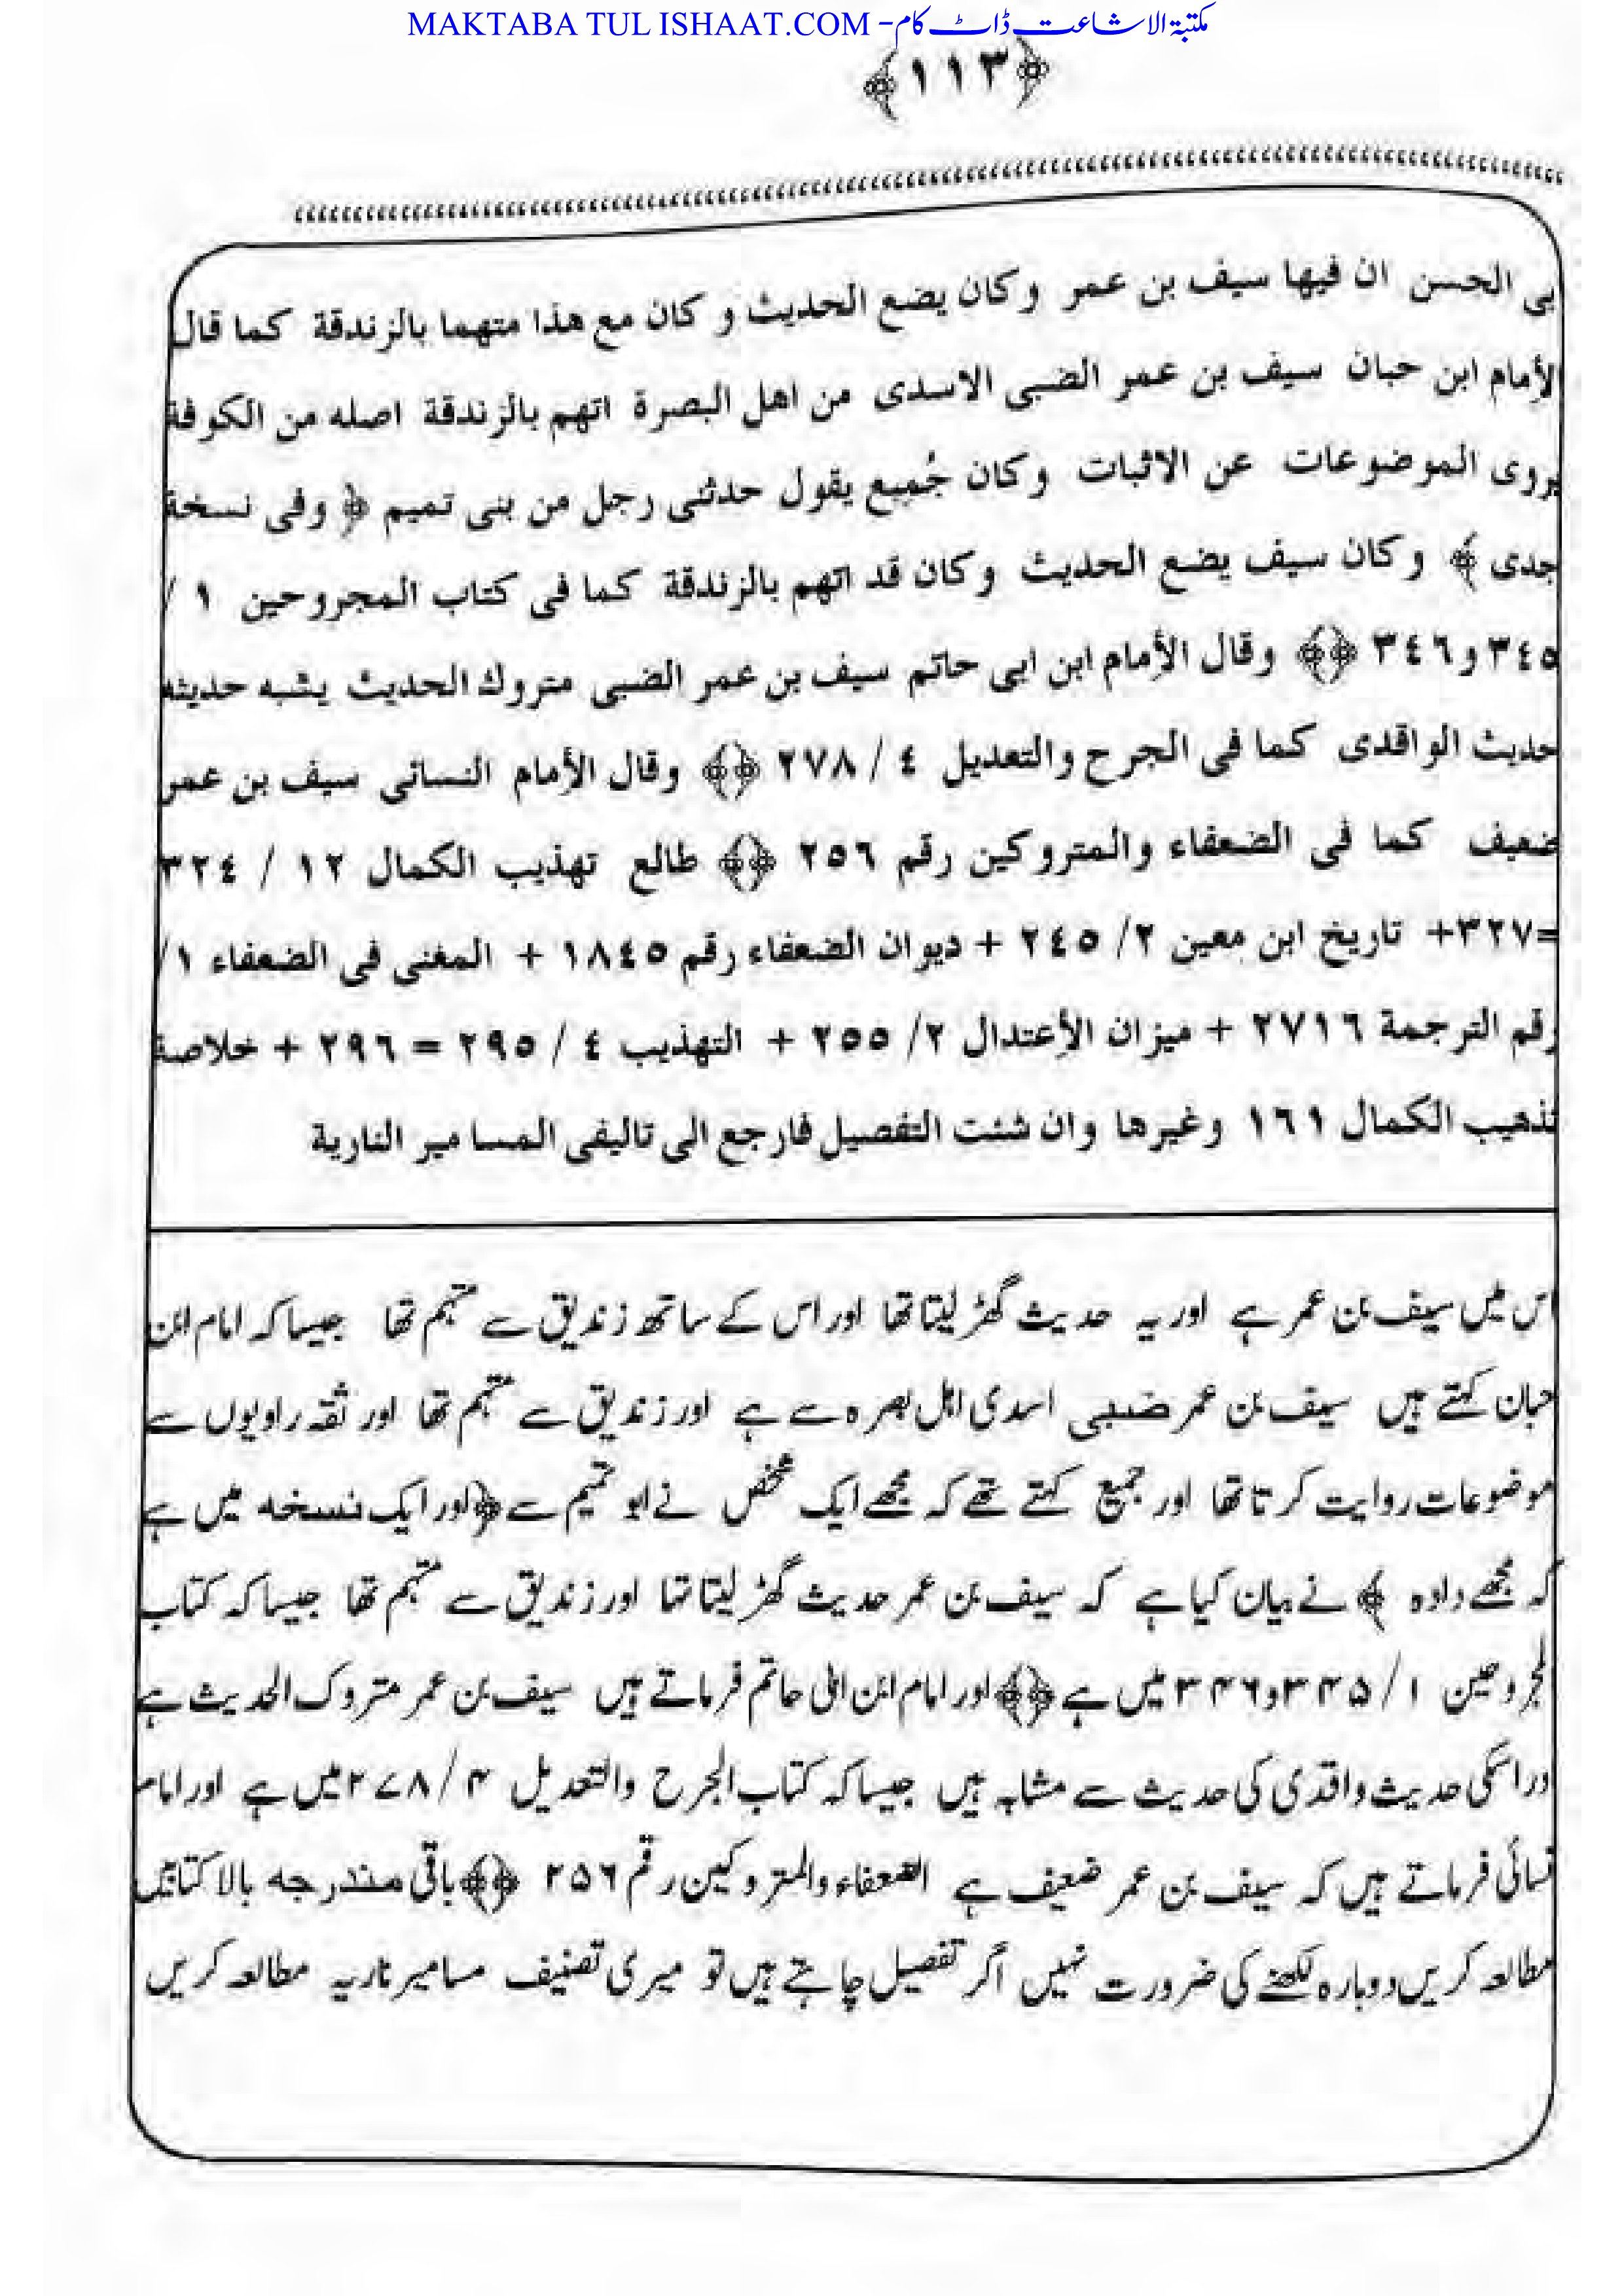 MAKTABA TUL ISHAAT.COM - مکتبۃ الاشاعت ڈاٹ کام
﴿١١٣﴾
بی الحسن ان فیها سیف بن عمر وکان یضع الحدیث و کان مع هذا متهما بالزندقة کما قال
الأمام ابن حبان سیف بن عمر الضبی الاسدی من اهل البصرة اتهم بالزندقة اصله من الکوفة
یروی الموضوعات عن الاثبات وکان جُمیع یقول حدثنی رجل من بنی تمیم ﴿ وفی نسخة
جدی ﴾ وکان سیف یضع الحدیث وکان قد اتهم بالزندقة کما فی کتاب المجروحین ١ /
٣٤٥ و ٣٤٦ ﴿﴾ وقال الأمام ابن ابی حاتم سیف بن عمر الضبی متروك الحدیث یشبه حدیثه
حدیث الواقدی کما فی الجرح والتعدیل ٤ / ٢٧٨ ﴿﴾ وقال الأمام النسائی سیف بن عمر
ضعیف کما فی الضعفاء والمتروکین رقم ٢٥٦ ﴿﴾ طالع تهذیب الکمال ١٢ / ٣٢٤
=٣٢٧+ تاریخ ابن معین ٢/ ٢٤٥ + دیوان الضعفاء رقم ١٨٤٥ + المغنی فی الضعفاء ١/
رقم الترجمة ٢٧١٦ + میزان الأعتدال ٢/ ٢٥٥ + التهذیب ٤ / ٢٩٥ = ٢٩٦ + خلاصة
تذهیب الکمال ١٦١ وغیرها وان شئت التفصیل فارجع الی تالیفی المسامیر الناریة
اس میں سیف بن عمر ہے اور یہ حدیث گھڑ لیتا تھا اور اس کے ساتھ زندیق سے متہم تھا جیسا کہ امام ابن
حبان کہتے ہیں سیف بن عمر ضبی اسدی اہل بصرہ سے ہے اور زندیق سے متہم تھا اور ثقہ راویوں سے
موضوعات روایت کرتا تھا اور جمیع کہتے تھے کہ مجھے ایک شخص نے ابو تمیم سے ﴿اور ایک نسخہ میں ہے
کہ مجھے دادہ ﴾ نے بیان کیا ہے کہ سیف بن عمر حدیث گھڑ لیتا تھا اور زندیق سے متہم تھا جیسا کہ کتاب
لمجروحین ۱ / ۳۴۵ و ۳۴۶ میں ہے ﴿﴾ اور امام ابن ابی حاتم فرماتے ہیں سیف بن عمر متروک الحدیث ہے
ور اسکی حدیث واقدی کی حدیث سے مشابہ ہیں جیسا کہ کتاب الجرح والتعدیل ۴ / ۲۷۸ میں ہے اور امام
نسائی فرماتے ہیں کہ سیف بن عمر ضعیف ہے الضعفاء والمتروکین رقم ۲۵۶ ﴿﴾ باقی مندرجہ بالا کتابیں
مطالعہ کریں دوبارہ لکھنے کی ضرورت نہیں اگر تفصیل چاہتے ہیں تو میری تصنیف مسامیر ناریہ مطالعہ کریں